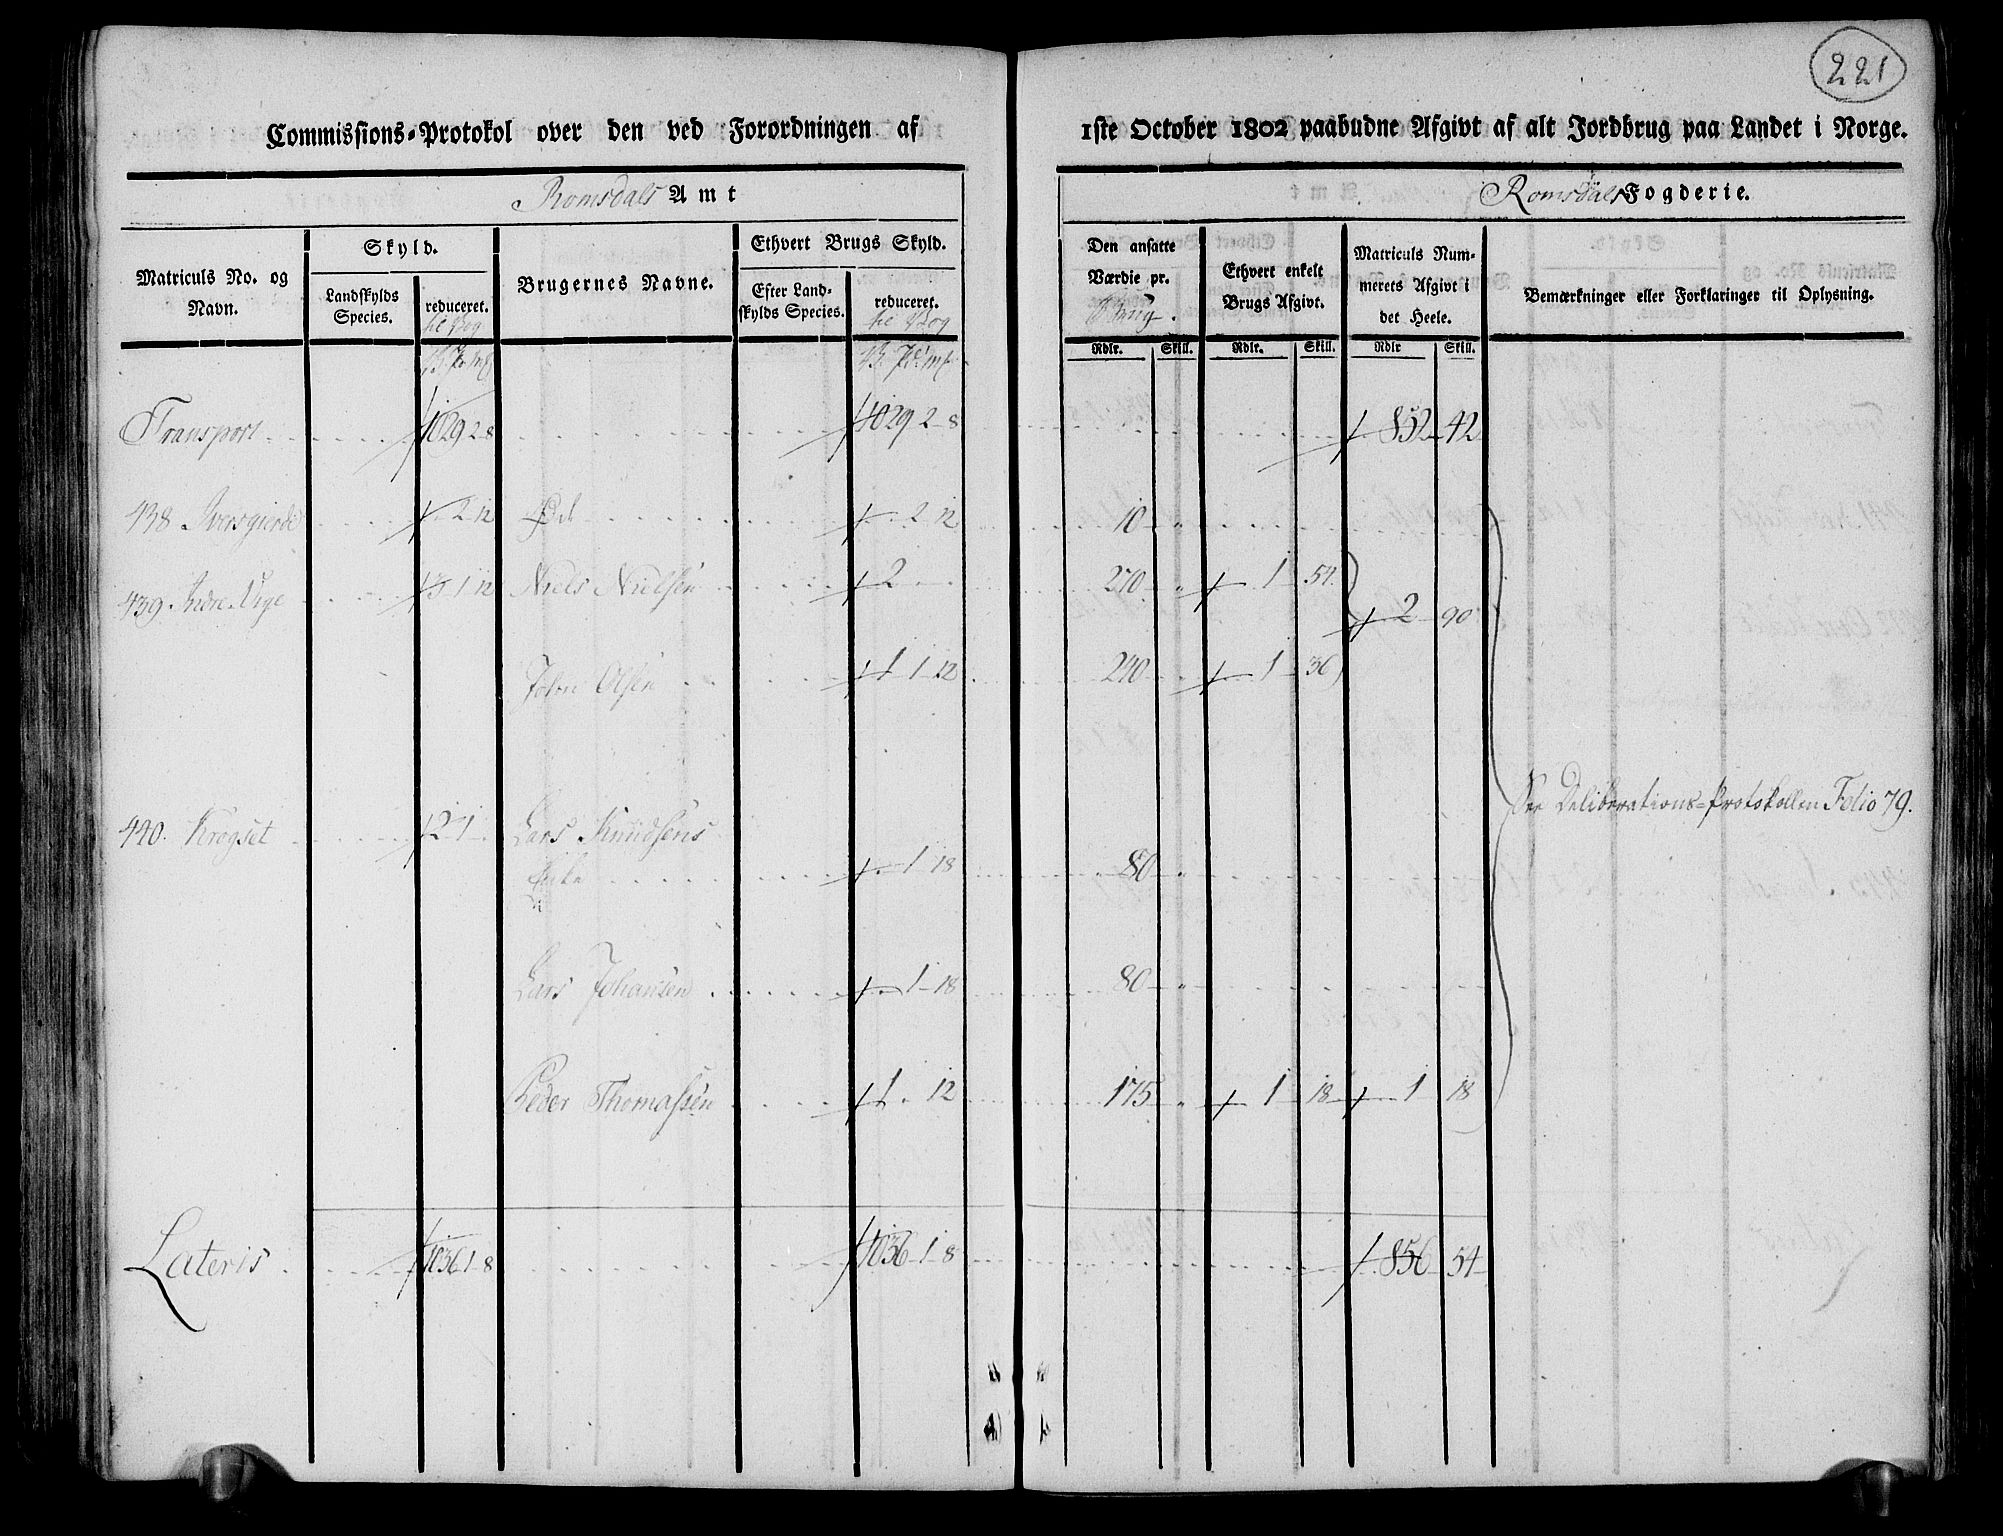 221
Commissions-Protokol over den ved Forordningen af 1ste October 1802 paabudne Afgivt af alt Jordbrug paa Landet i Norge.
Romsdals Amt
Romsdals Fogderie.
Matriculs No. og Navn.
Skyld.
Landskylds Species.
reduceret.
til Vog
Brugernes Navne.
Ethvert Brugs Skyld.
Efter Landskylds Species.
reduceret.
til Vog
Den ansatte Værdie pr. Brug.
Ethvert enkelt Brugs Afgivt.
Matriculs Nummerets Afgivt i det Heele.
Bemærkninger eller Forklaringer til Oplysning.
Rdlr. Skill. Rdlr. Skill. Rdlr Skill.
Transport 1029 2 8 1029 2 8 852 42
438 Iversgierde 2 12 Øde 2 12 10 "
439 Indre Vige 3 1 12 Niels Nielsen 2 270 " 1 54
2 90
John Olsen 1 1 12 240 1 36
See Deliberations-Protokollen Folio 79.
440. Krogset 2 1 Lars Knudsens
Enke 1 18 80 "
Lars Johansen 1 18 80 "
Peder Thomassen 1 12 175 " 1 18 1 18
Lateris 1036 1 8 1036 1 8 856 54